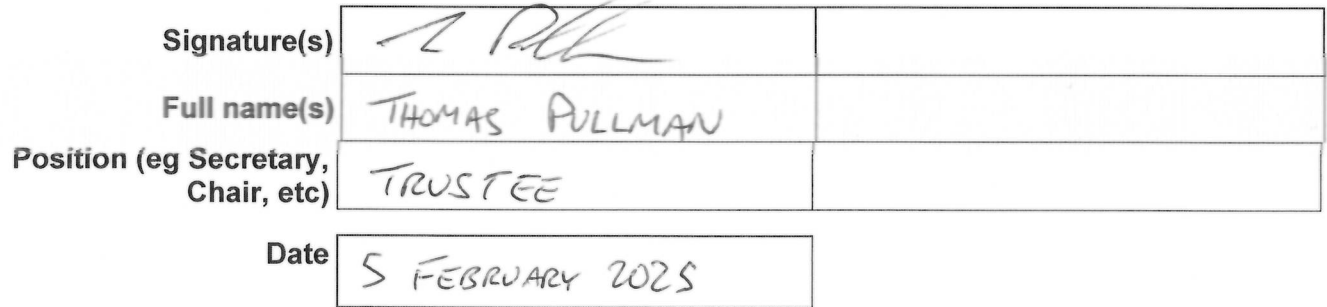 Signature(s)
Full name(s) THOMAS PULLMAN
Position (eg Secretary,
Chair, etc) TRUSTEE
Date 5 FEBRUARY 2025